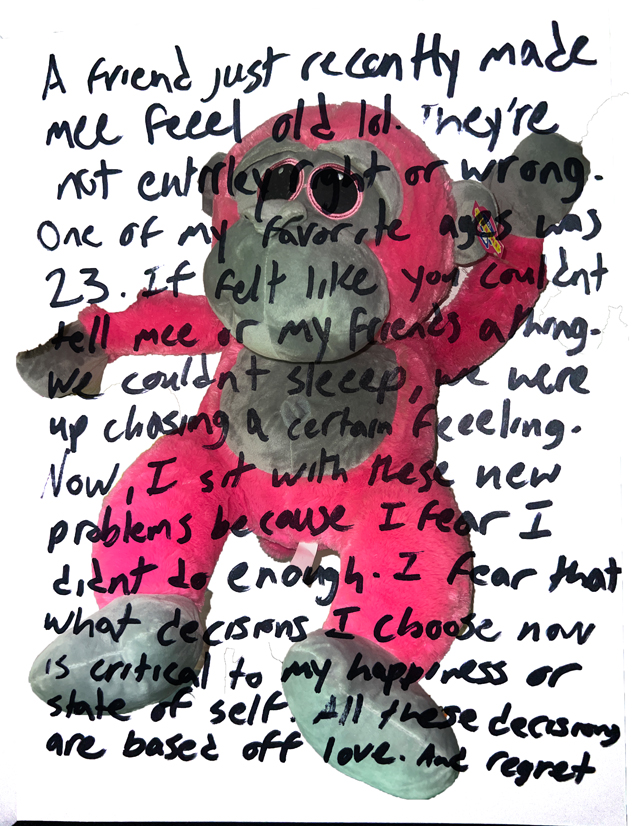 A friend just recently made
mee feeel old lol. They're
not entirley right or wrong.
One of my favorite ages was
23. It felt like you couldnt
tell mee or my friends a thing.
We couldnt sleeep, we were
up chasing a certain feeeling.
Now, I sit with these new
problems because I fear I
didnt do enough. I fear that
what decisions I choose now
is critical to my happiness or
state of self. All these decisions
are based off love. And regret